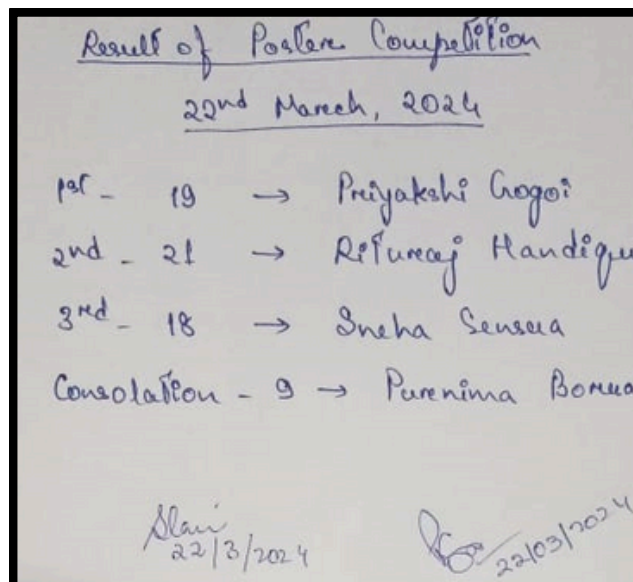 Result of Poster Competition
22nd March, 2024
1st - 19 → Priyakshi Gogoi
2nd - 21 → Rituraj Handiqu
3rd - 18 → Sneha Sensua
Consolation - 9 → Purnima Borua
22/3/2024
22/03/2024